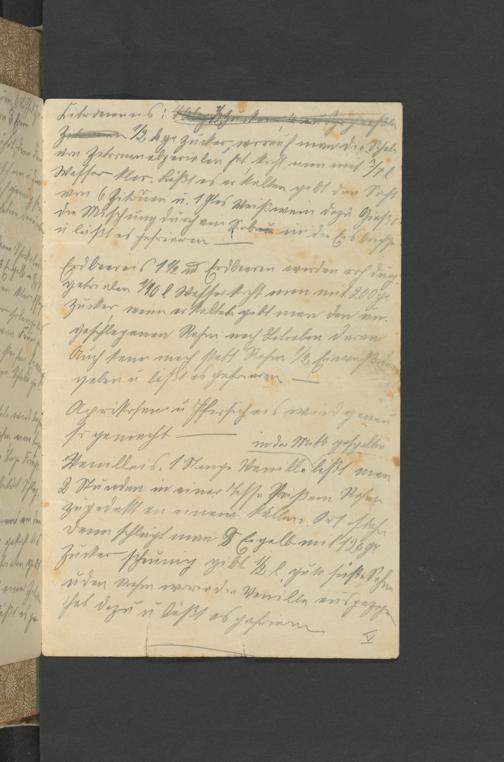 Zitroneneis:
1/2 kg Zucker, worauf man die Schale
von Zitronen abgerieben hat kocht man mit 3/4 l
Wasser klar. Läßt es erkalten gibt den Saft
von 6 Zitronen u. 1 Glas Weißwein dazu gießt
die Mischung durch ein Sieb in die Eisbüchse
u läßt es gefrieren
Erdbeereis 1 1/2 Erdbeeren werden roh durch
getrieben 1/10 l Wasser kocht man mit 200 gr
Zucker wenn erkaltet gibt man den un-
geschlagenen Rahm nach Belieben daran
Auch kann man statt Rahm 1/2
geben u läßt es gefrieren
Aprikosen u Pfirsicheis wird genau
so gemacht in der Mitte gespalten
Vanilleeis. 1 Stange Vanille läßt man
2 Stunden in einer Tasse Rahm
zugedeckt an einem Ort stehen
Dann schlägt man 8 Eigelb mit 125 gr
Zucker schaumig gibt 1/2 l gute süße Sahne
u den Rahm worin die Vanille ausgezogen
hat dazu u läßt es gefrieren
V